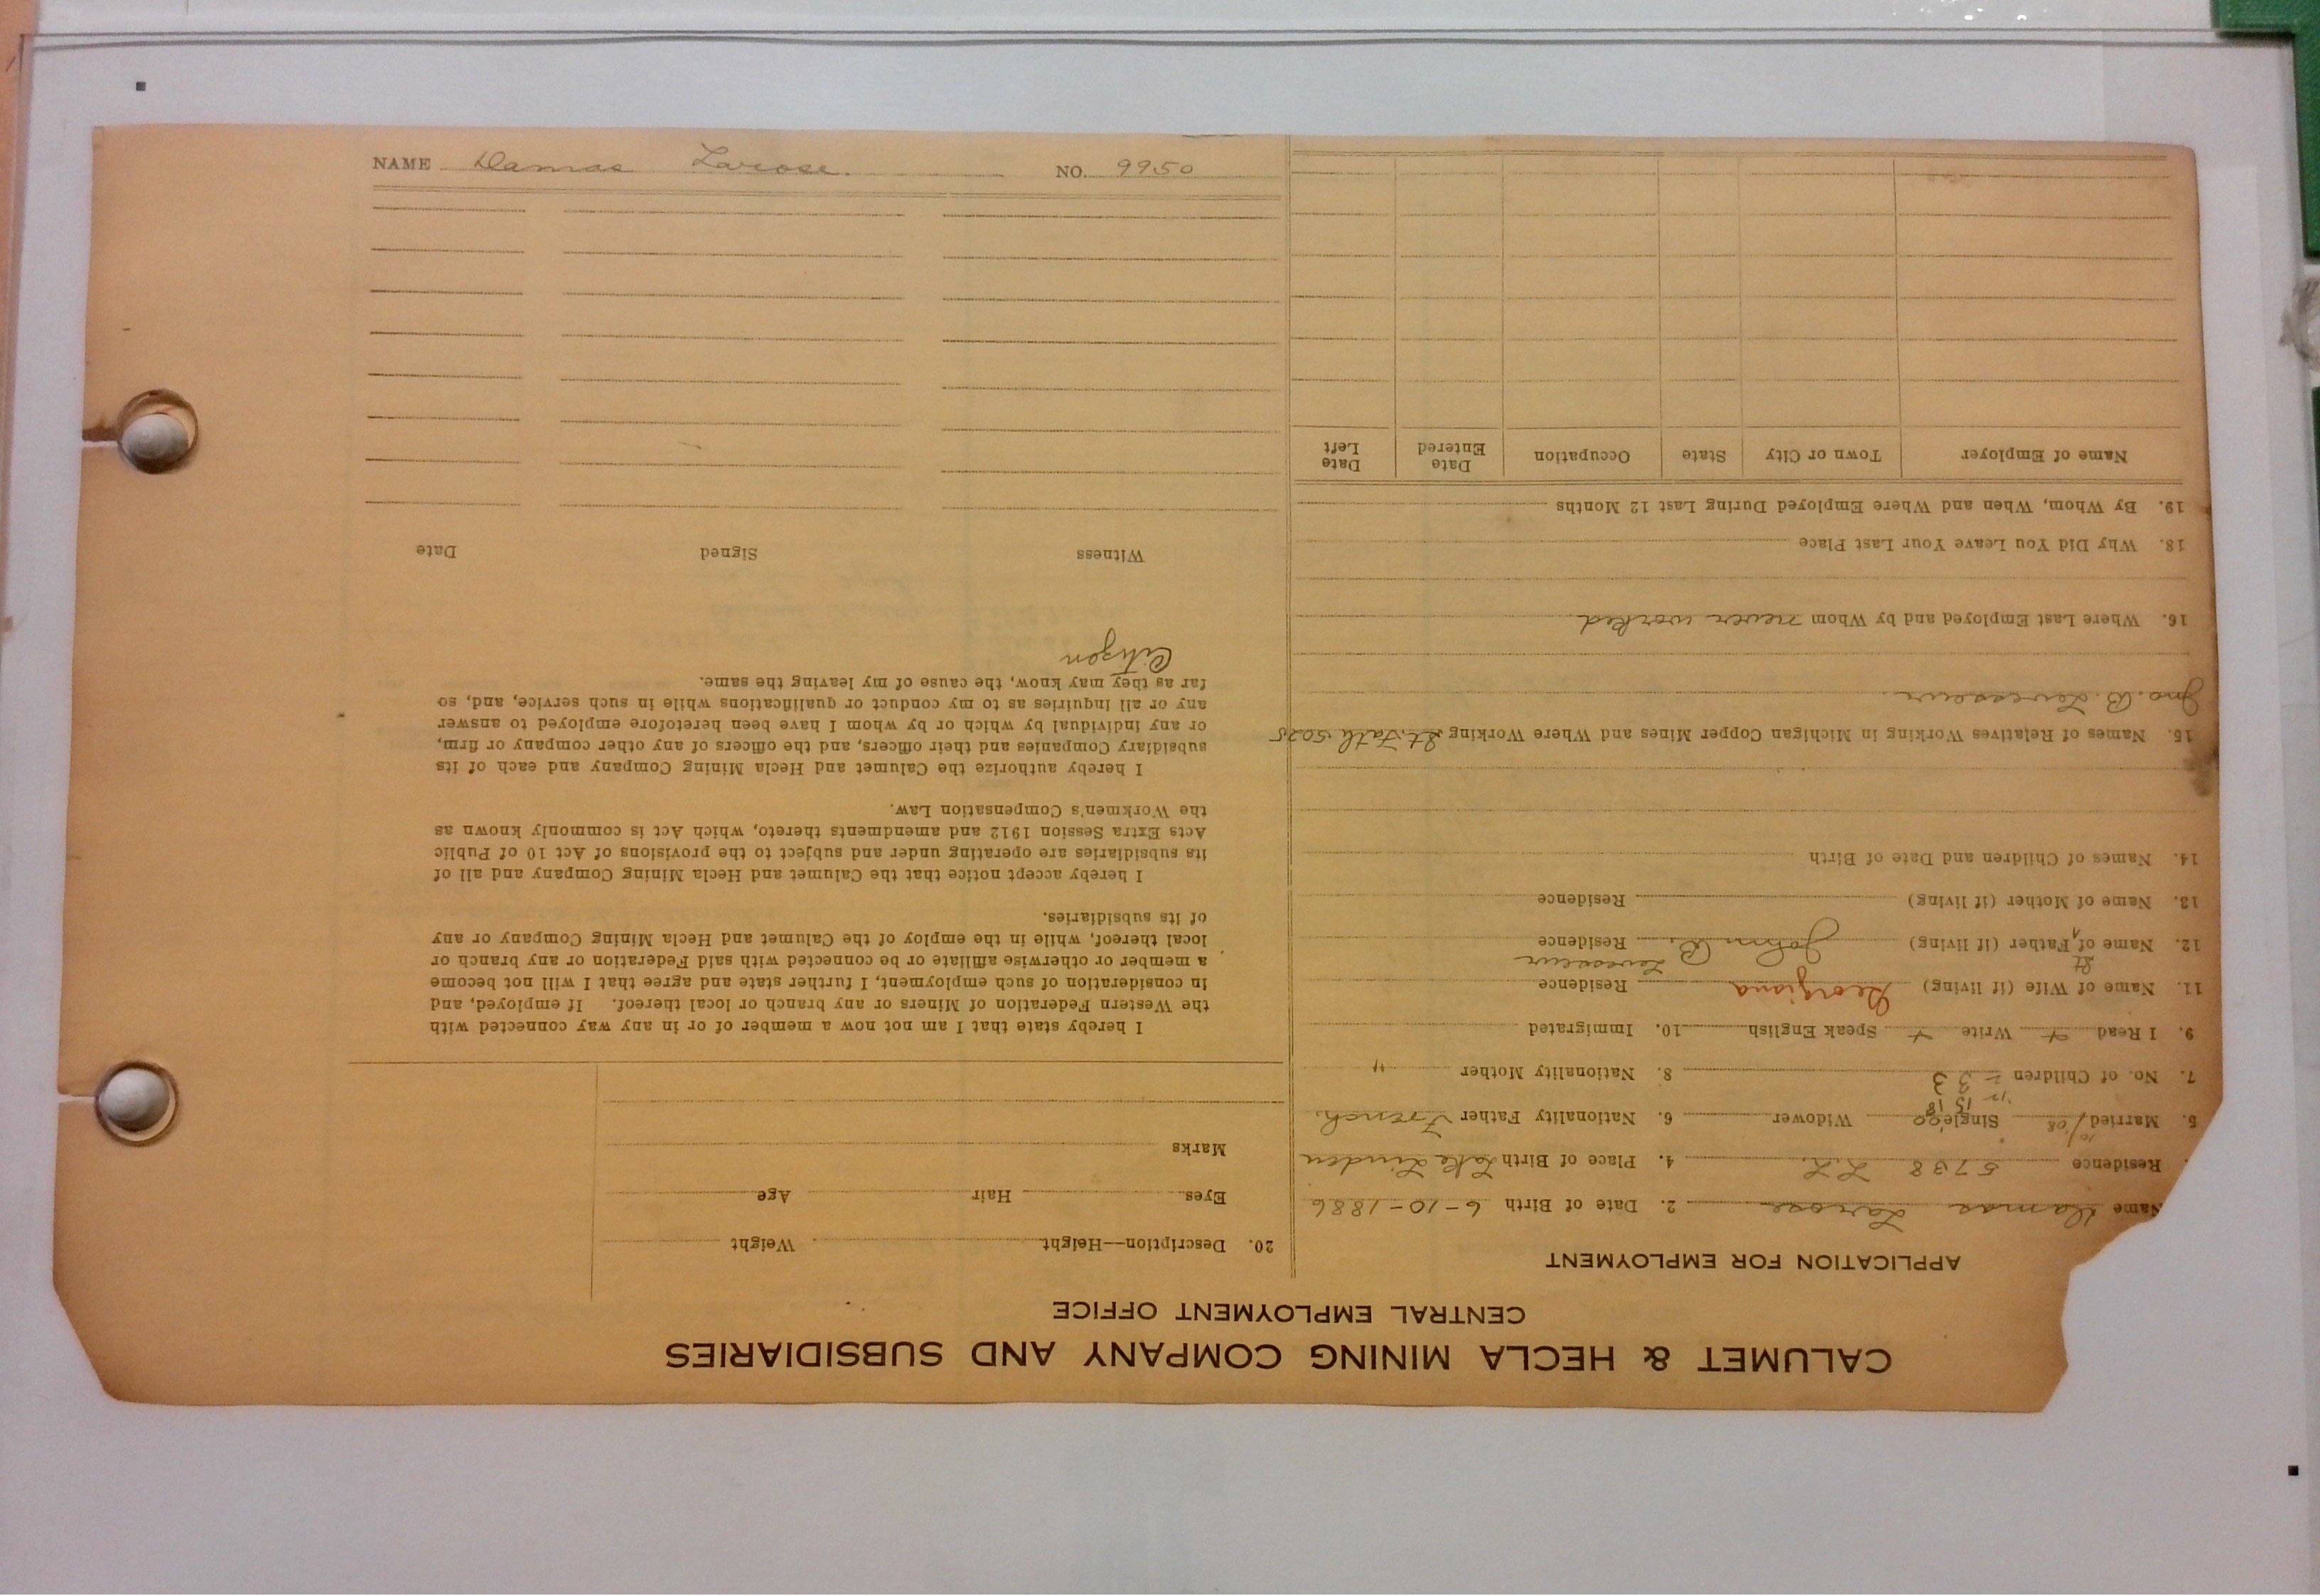 CALUMET & HECLA MINING COMPANY AND SUBSIDIARIES
CENTRAL EMPLOYMENT OFFICE
APPLICATION FOR EMPLOYMENT
Name Damas Larose 2. Date of Birth 6-10-1886
Residence 5738 L.L. 4. Place of Birth Lake Linden
5. Married 10/08 Single Widower 6. Nationality Father French.
7. No. of Children 3 8. Nationality Mother "
9. I Read + Write + Speak English 10. Immigrated
11. Name of Wife (if living) Georgiana Residence
12. Name of St Father (if living) John B. Levesseur Residence
13. Name of Mother (if living) Residence
14. Names of Children and Date of Birth
15. Names of Relatives Working in Michigan Copper Mines and Where Working St. Fath. 5025
Jno. B. Levesseur.
16. Where Last Employed and by Whom never worked
18. Why Did You Leave Your Last Place
19. By Whom, When and Where Employed During Last 12 Months
Name of Employer Town or City State Occupation Date Entered Date Left
20. Description—Height Weight
Eyes Hair Age
Marks
I hereby state that I am not now a member of or in any way connected with
the Western Federation of Miners or any branch or local thereof. If employed, and
in consideration of such employment, I further state and agree that I will not become
a member or otherwise affiliate or be connected with said Federation or any branch or
local thereof, while in the employ of the Calumet and Hecla Mining Company or any
of its subsidiaries.
I hereby accept notice that the Calumet and Hecla Mining Company and all of
its subsidiaries are operating under and subject to the provisions of Act 10 of Public
Acts Extra Session 1912 and amendments thereto, which Act is commonly known as
the Workmen's Compensation Law.
I hereby authorize the Calumet and Hecla Mining Company and each of its
subsidiary Companies and their officers, and the officers of any other company or firm,
or any individual by which or by whom I have been heretofore employed to answer
any or all inquiries as to my conduct or qualifications while in such service, and, so
far as they may know, the cause of my leaving the same.
Citizen
Witness Signed Date
NAME Damas Larose. NO. 9950